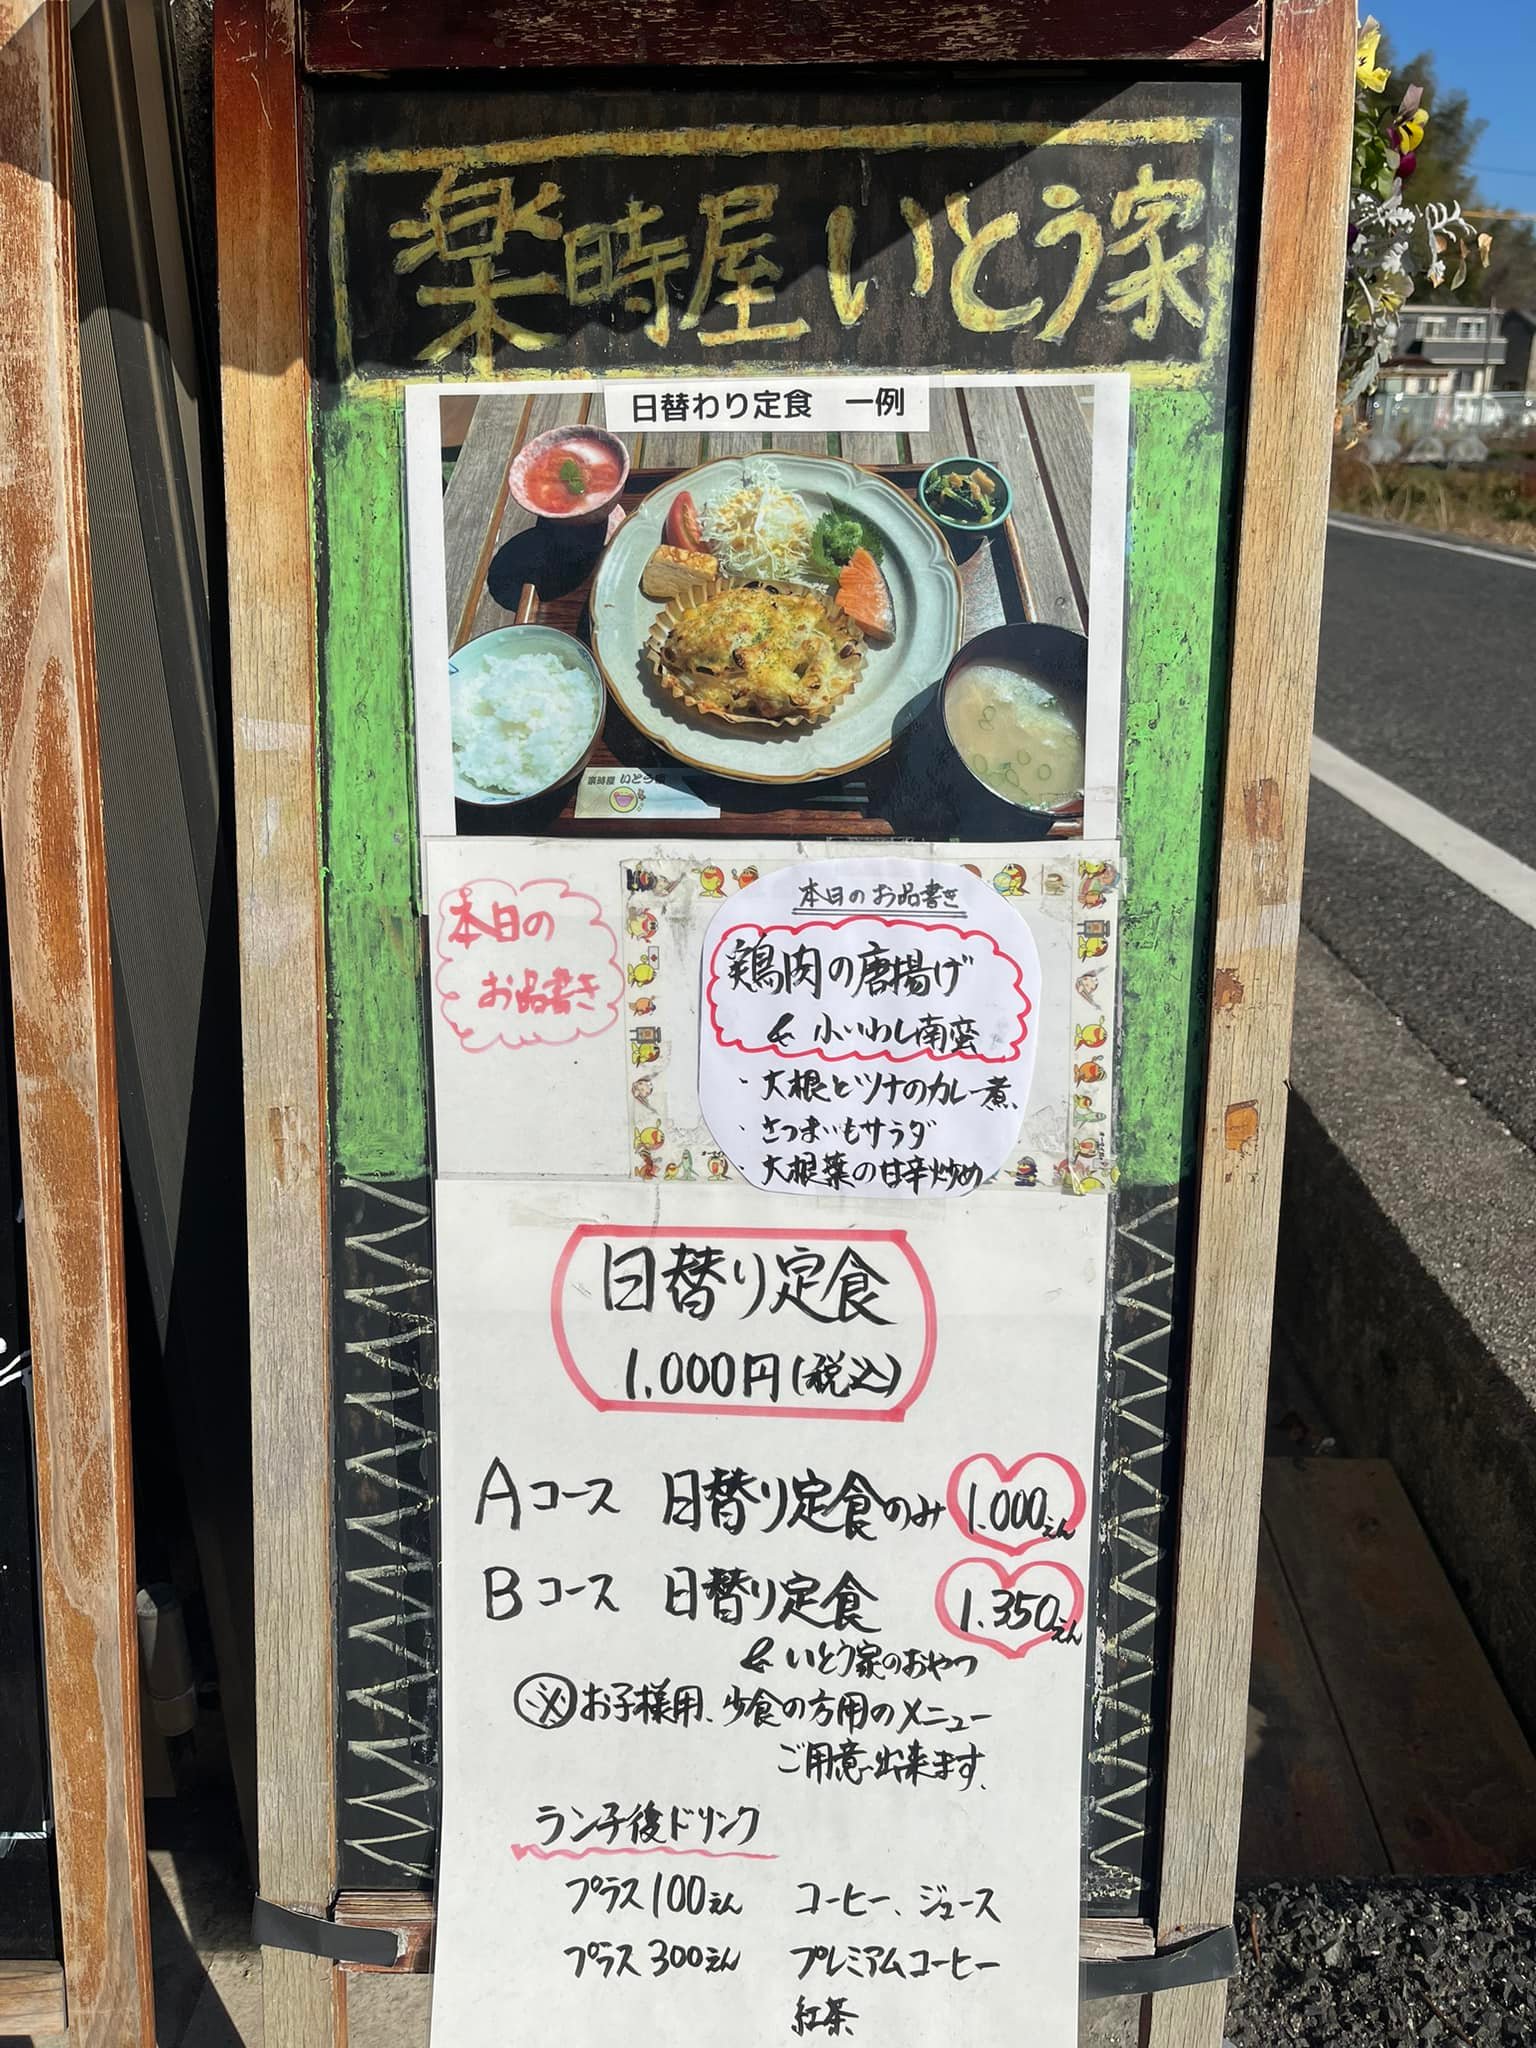 楽時屋 いとう家
日替わり定食 一例
楽時屋 いとう家
本日の
お品書き
本日のお品書き
鶏肉の唐揚げ
& 小いわし南蛮
・大根とツナのカレー煮
・さつまいもサラダ
・大根葉の甘辛炒め
日替り定食
1.000円(税込)
Aコース 日替り定食のみ 1.000えん
Bコース 日替り定食 1.350えん
& いとう家のおやつ
※お子様用、少食の方用のメニュー
ご用意出来ます。
ランチ後ドリンク
プラス100えん コーヒー、ジュース
プラス300えん プレミアムコーヒー
紅茶